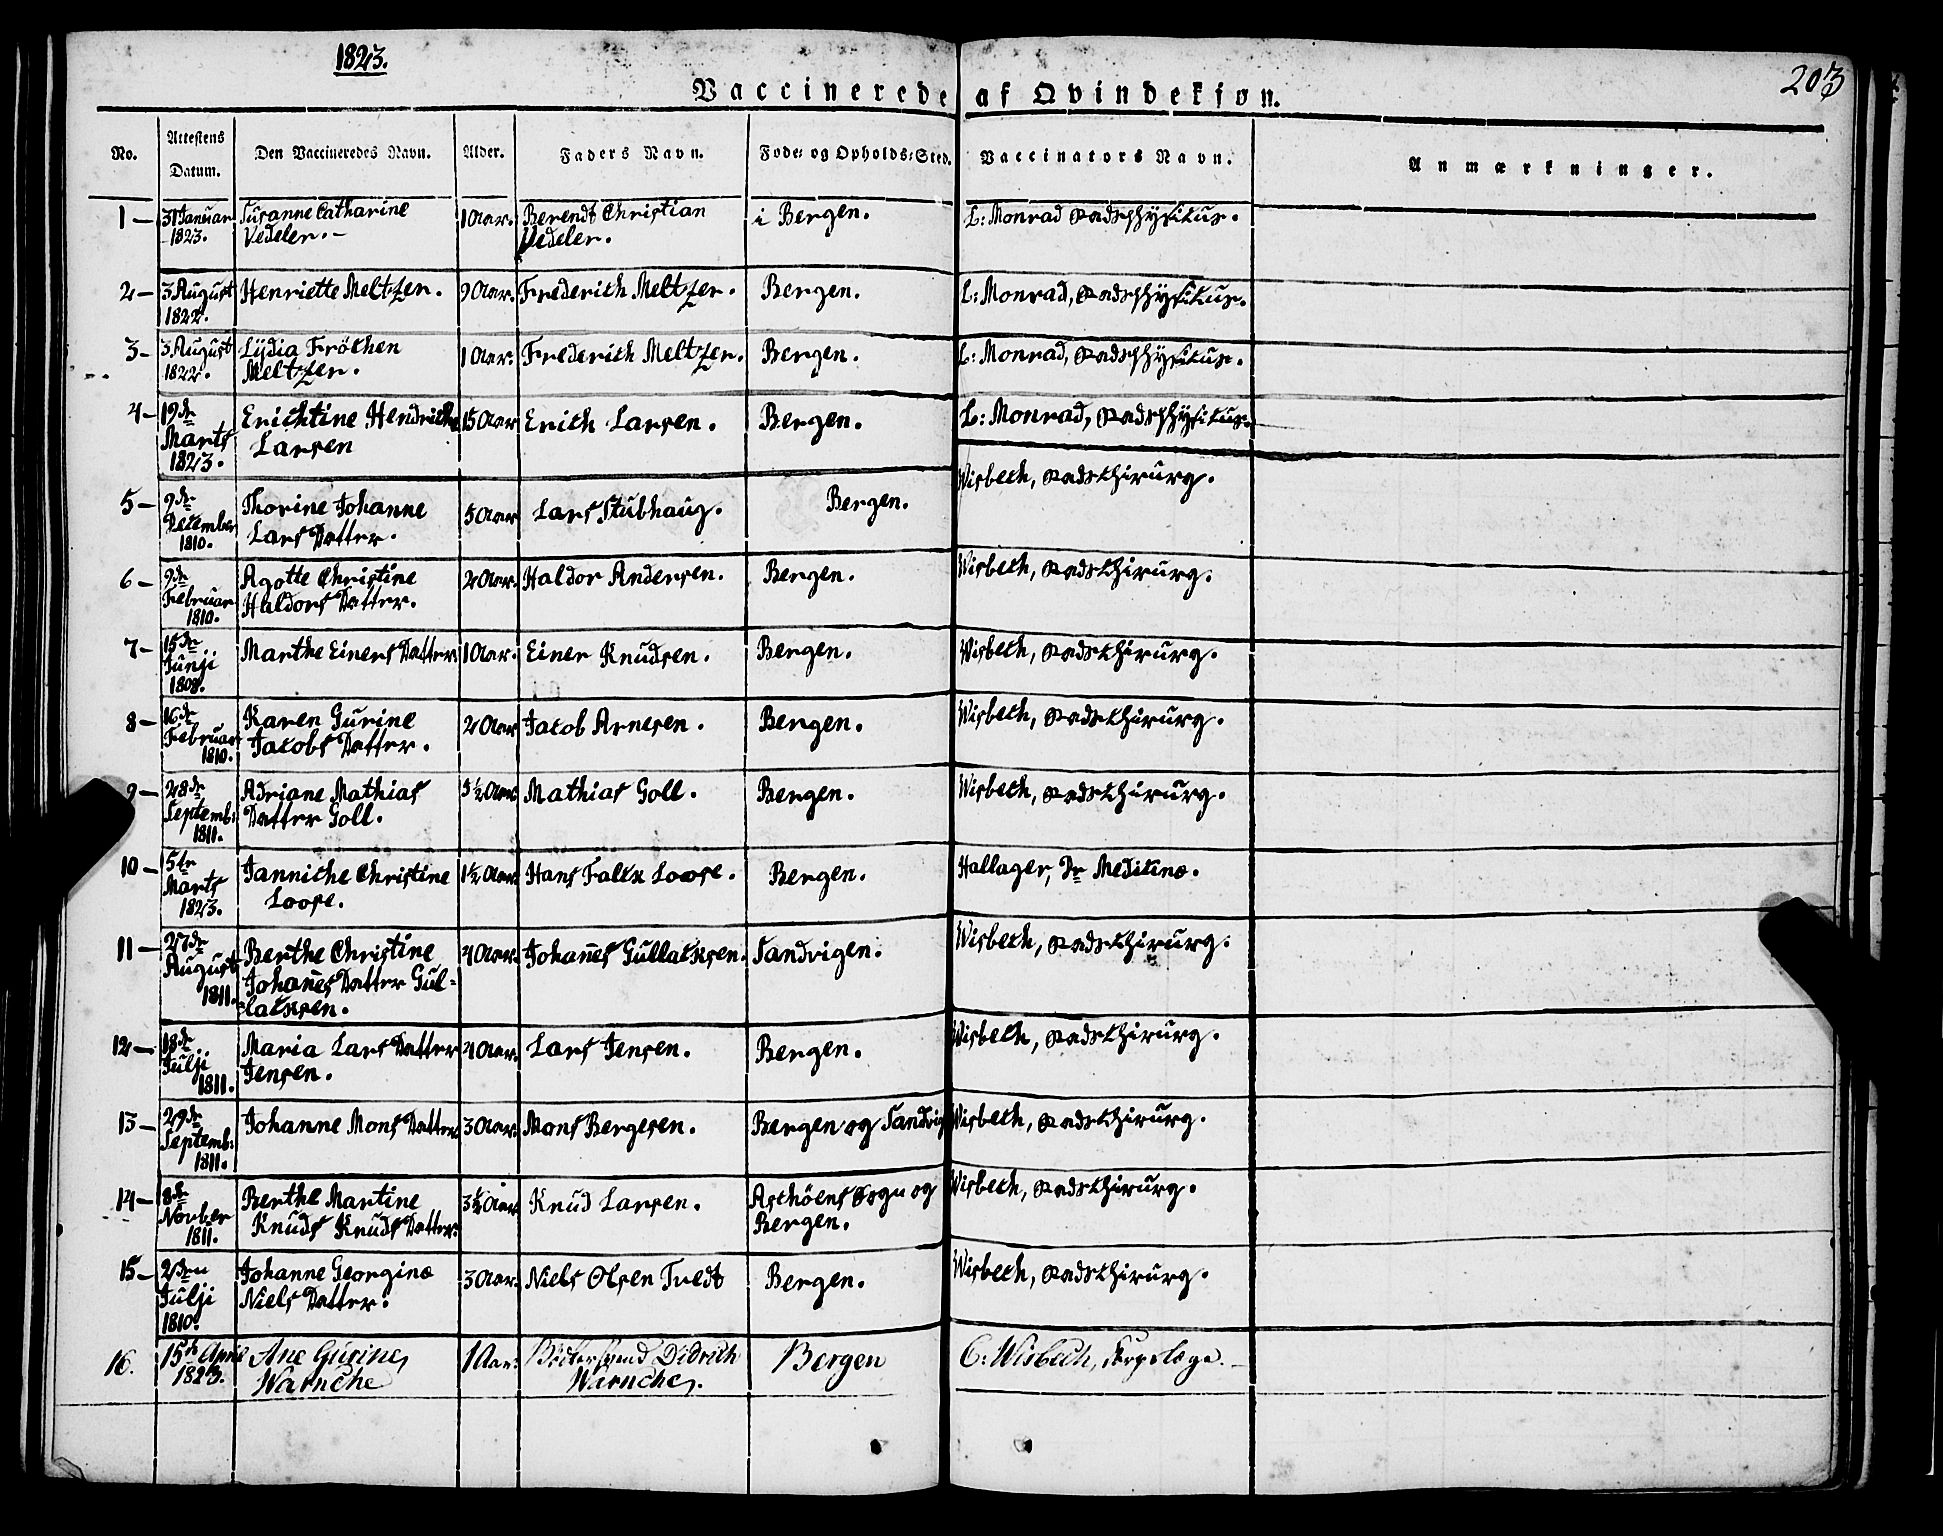 1823.
203
Vaccinerede af Qvindekjøn.
No. Attestens Datum. Den Vaccineredes Navn. Alder. Faders Navn. Føde- og Opholds-Sted. Vaccinators Navn. Anmærkninger.
1 — 31 Januar Susanne Catharine 1 Aar. Berendt Christian i Bergen. L: Monrad Stadsphysikus.
1823. Vedeler. — Vedeler.
2 — 3 August Henriette Meltzer. 9 Aar. Frederich Meltzer. Bergen. L: Monrad, Stadsphysikus.
1822.
3 — 3 August Lydia Fröchen 1 Aar. Frederich Meltzer. Bergen. L: Monrad, Stadsphysikus.
1822. Meltzer.
4 — 19de Erichtine Hendricke 15 Aar Erich Larsen. Bergen. L: Monrad, Stadsphysikus.
Marts Larsen
1823.
5 — 9de Thorine Johanne 5 Aar Lars Stubhaug. Bergen. Wisbech, Stadschirurg.
December Lars Datter.
1810.
6 — 9de Agotte Christine 2 Aar. Haldor Andersen. Bergen. Wisbech, Stadschirurg.
Februar Haldors Datter.
1810.
7 — 15de Marthe Einers Datter 1 Aar. Einer Knudsen. Bergen. Wisbech, Stadschirurg.
Junji
1808.
8 — 16de Karen Gurine 2 Aar Jacob Arnesen. Bergen. Wisbech, Stadschirurg.
Februar Jacobs Datter.
1810.
9 — 28de Adriane Mathias 5½ Aar Mathias Goll. Bergen. Wisbech, Stadschirurg.
Septemb: Datter Goll.
1811.
10 — 5te Janniche Christine 1½ Aar Hans Falck Loose. Bergen. Hallager, Dr Medicinæ.
Marts Loose.
1823.
11 — 27de Berthe Christine 4 Aar. Johanes Gullacksen. Sandvigen. Wisbech, Stadschirurg.
August Johanes Datter Gul-
1811. lacksen.
12 — 18de Maria Lars Datter 4 Aar. Lars Jensen. Bergen. Wisbech, Stadschirurg.
Julji Jensen.
1811.
13 — 29de Johanne Mons Datter 3 Aar. Mons Bergesen. Bergen og Sandvig Wisbech, Stadschirurg.
Septemb:
1811.
14 — 8de Berthe Martine 3½ Aar Knud Larsen. Askhöens Sogn og Wisbech, Stadschirurg.
Novber Knuds Knuds Datter. Bergen.
1811.
15 — 2den Johanne Georgine 3 Aar. Niels Olsen Tvedt Bergen. Wisbech, Stadschirurg.
Julji Niels Datter.
1810.
16. 15de April Ane Gurine 1 Aar. Bödkersvend Didrich Bergen C: Wisbech, Corpslæge. —
1823. Warncke Warncke.